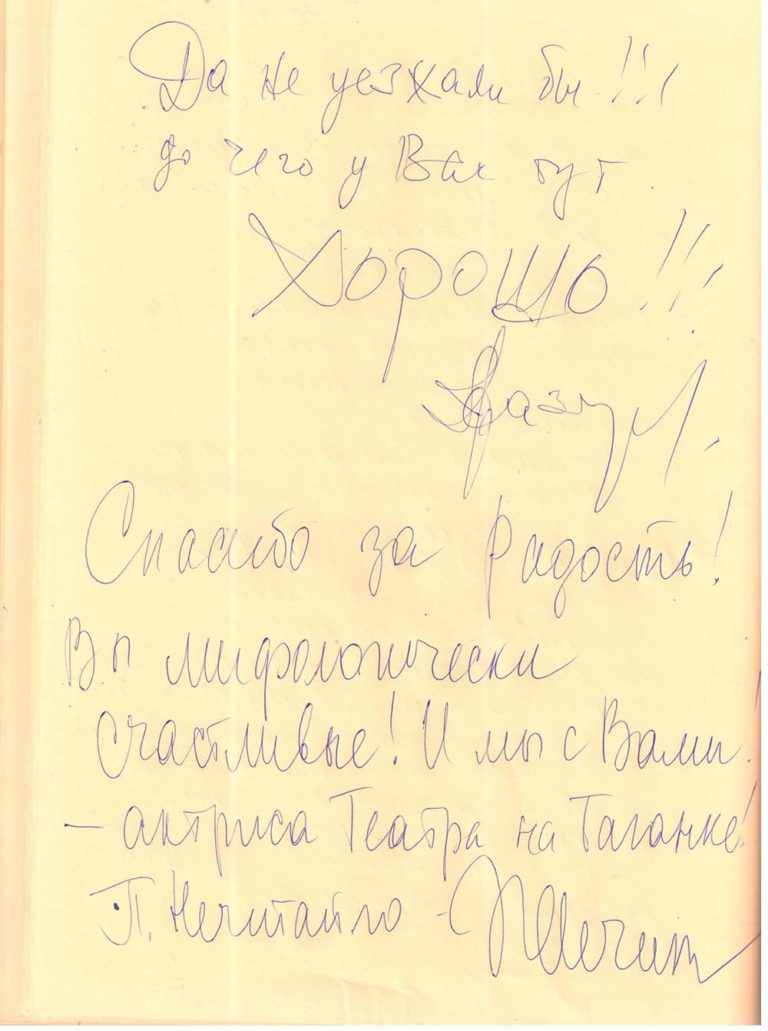 Да не уезжали бы!!!
до чего у Вас тут
Хорошо!!!
Спасибо за радость!
Вы мифологически
счастливые! И мы с Вами!
– актриса Театра на Таганке!
П. Нечитайло –